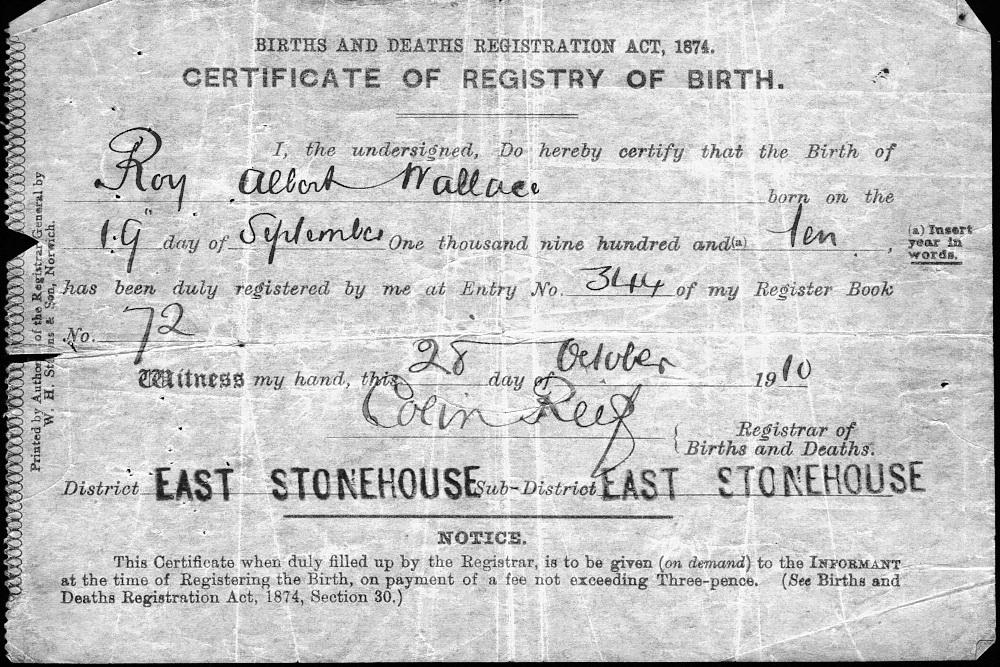 BIRTHS AND DEATHS REGISTRATION ACT, 1874.
CERTIFICATE OF REGISTRY OF BIRTH.
I, the undersigned, Do hereby certify that the Birth of
Roy Albert Wallace born on the
19" day of September One thousand nine hundred and (a) Ten,
(a) Insert
year in
words.
has been duly registered by me at Entry No. 344 of my Register Book
No. 72
Witness my hand, this 28 day of October 1910
Colin Reef
Registrar of
Births and Deaths.
District EAST STONEHOUSE Sub-District EAST STONEHOUSE
NOTICE.
This Certificate when duly filled up by the Registrar, is to be given (on demand) to the INFORMANT
at the time of Registering the Birth, on payment of a fee not exceeding Three-pence. (See Births and
Deaths Registration Act, 1874, Section 30.)
Printed by of the Registrar General by
W. H. & Son, Norwich.